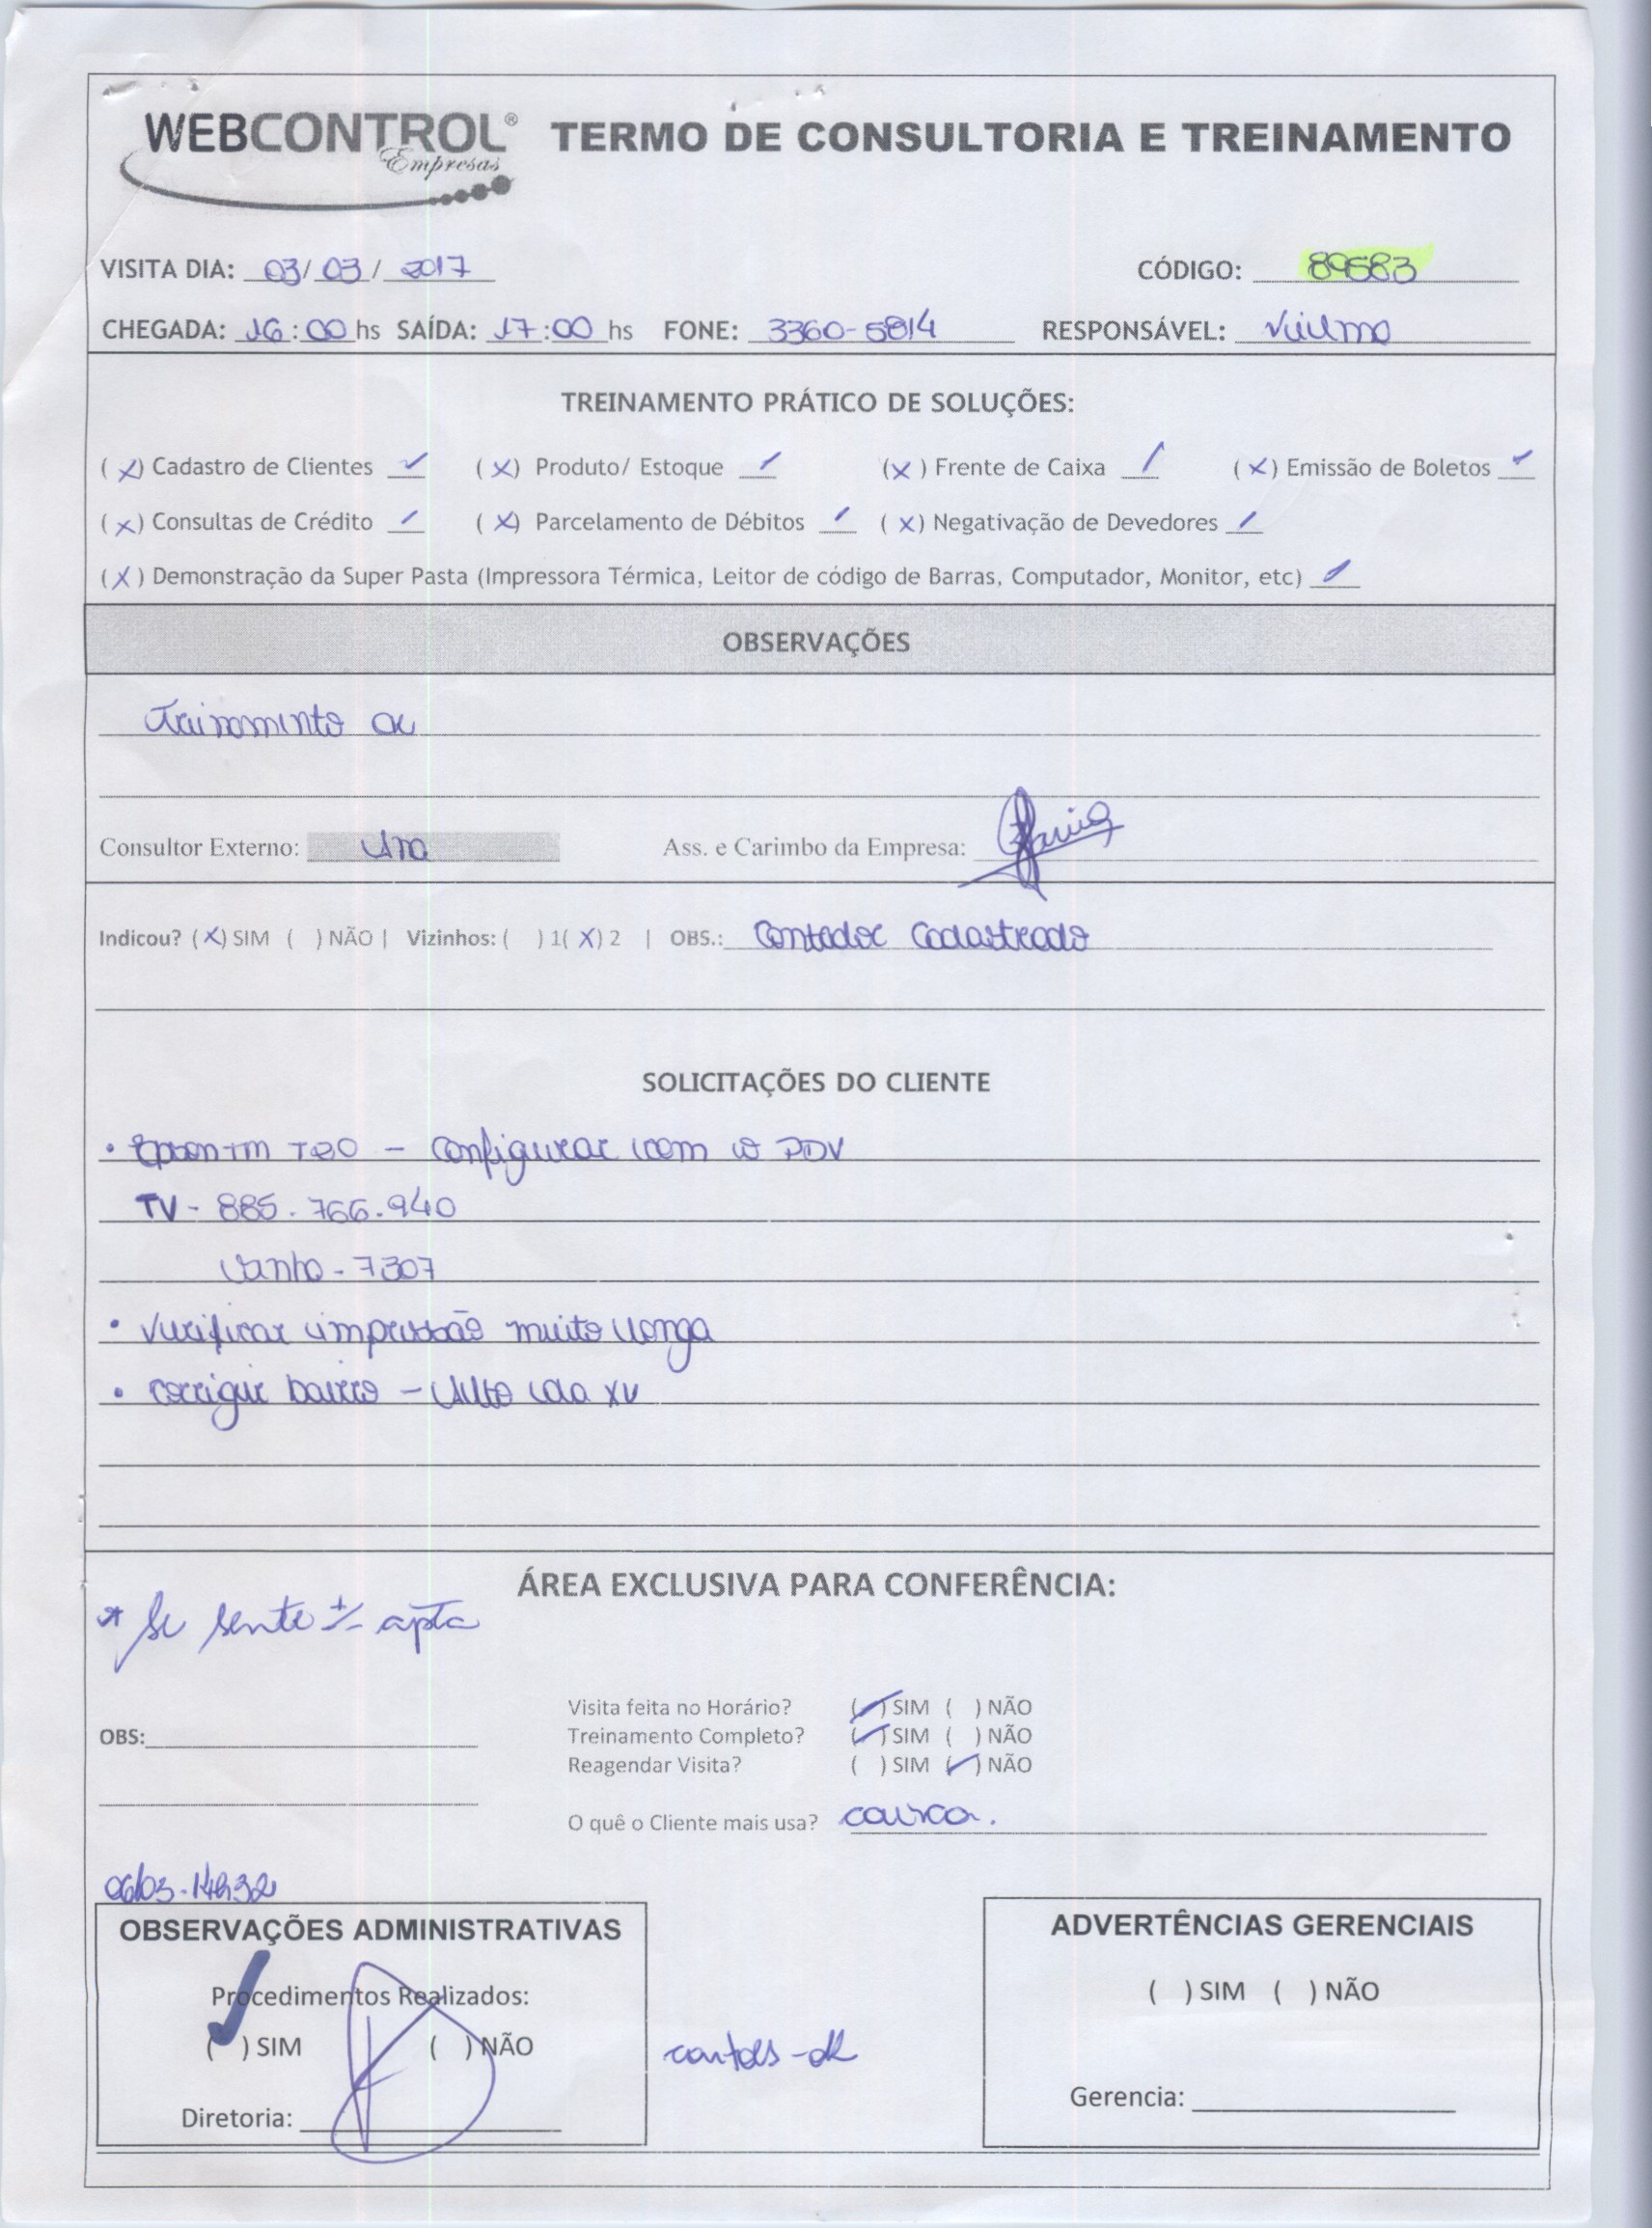 WEBCONTROL® Empresas TERMO DE CONSULTORIA E TREINAMENTO
VISITA DIA: 03/ 03 / 2017 CÓDIGO: 89583
CHEGADA: 16:00 hs SAÍDA: 17:00 hs FONE: 3360-5814 RESPONSÁVEL:
TREINAMENTO PRÁTICO DE SOLUÇÕES:
(x) Cadastro de Clientes ✓ (x) Produto/ Estoque ✓ (x) Frente de Caixa ✓ (x) Emissão de Boletos ✓
(x) Consultas de Crédito ✓ (x) Parcelamento de Débitos ✓ (x) Negativação de Devedores ✓
(x) Demonstração da Super Pasta (Impressora Térmica, Leitor de código de Barras, Computador, Monitor, etc) ✓
OBSERVAÇÕES
Treinamento ok
Consultor Externo: Ass. e Carimbo da Empresa:
Indicou? (x) SIM ( ) NÃO | Vizinhos: ( ) 1 (x) 2 | OBS.: Contador Cadastrado
SOLICITAÇÕES DO CLIENTE
• Epson-tm T20 – Configurar com o PDV
TV - 885.766.940
Senha - 7307
• Verificar impressão muito longa
• corrigir bairro – Alto da XV
ÁREA EXCLUSIVA PARA CONFERÊNCIA:
* Se sente +/- apta
Visita feita no Horário? (✓) SIM ( ) NÃO
OBS: Treinamento Completo? (✓) SIM ( ) NÃO
Reagendar Visita? ( ) SIM (✓) NÃO
O quê o Cliente mais usa? caixa.
06/03-14h32
OBSERVAÇÕES ADMINISTRATIVAS
Procedimentos Realizados:
(✓) SIM ( ) NÃO
Diretoria:
-ok
ADVERTÊNCIAS GERENCIAIS
( ) SIM ( ) NÃO
Gerencia: